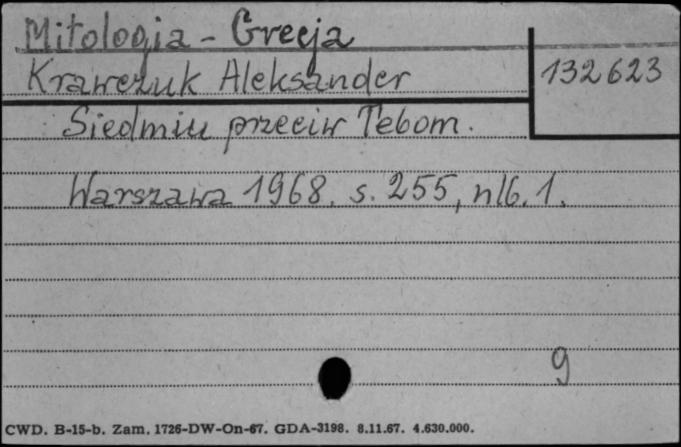 Mitologia - Grecja
Krawczuk Aleksander
132623
Siedmiu przeciw Tebom.
Warszawa 1968. s. 255, nlb. 1.
9
CWD. B-15-b. Zam. 1726-DW-On-67. GDA-3198. 8.11.67. 4.630.000.